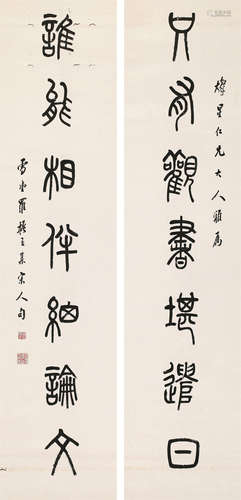 只有觀書堪遣日
燦星仁兄大人雅屬
誰能相伴細論文
羅 集宋人句